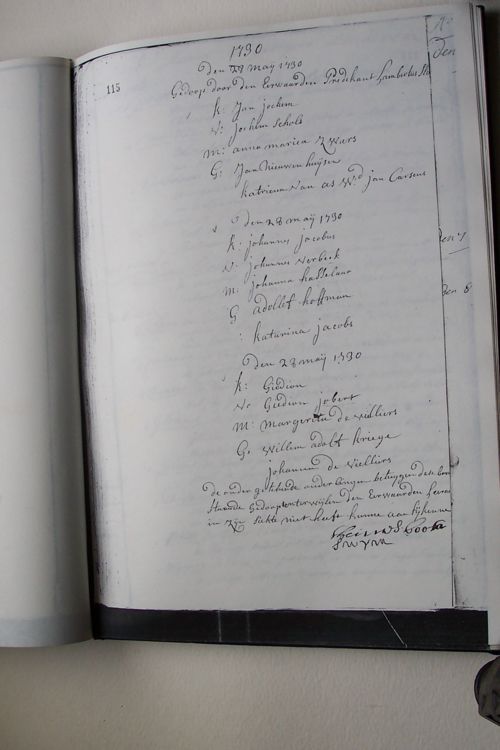 115
1730
den 28 Maÿ 1730
Gedoopt door den Eerwaarden Predikant Lambertus
K: Jan Jochem
V: Jochem Scholt
M: anna marica Zwars
G: Jan Nieuwenhuijsen
katriena Van as W:d jan Carsens
den 28 maÿ 1730
K: johannes jacobus
V: johannes verbeek
M: johanna hasselaar
G adollef hoffman
: katarina jacobs
den 28 maÿ 1730
K: Giedion
V: Giedion jobert
M: Margereta de villiers
G: Willem adolf kriege
johanna de Vielliers
de onder getekende ouderlingen betuÿgen dat
Staande gedoopten terwijlen den Eerwaarden heere
in zijn siekte niet heeft kunne aan tijkenen
den
den 7
den 8